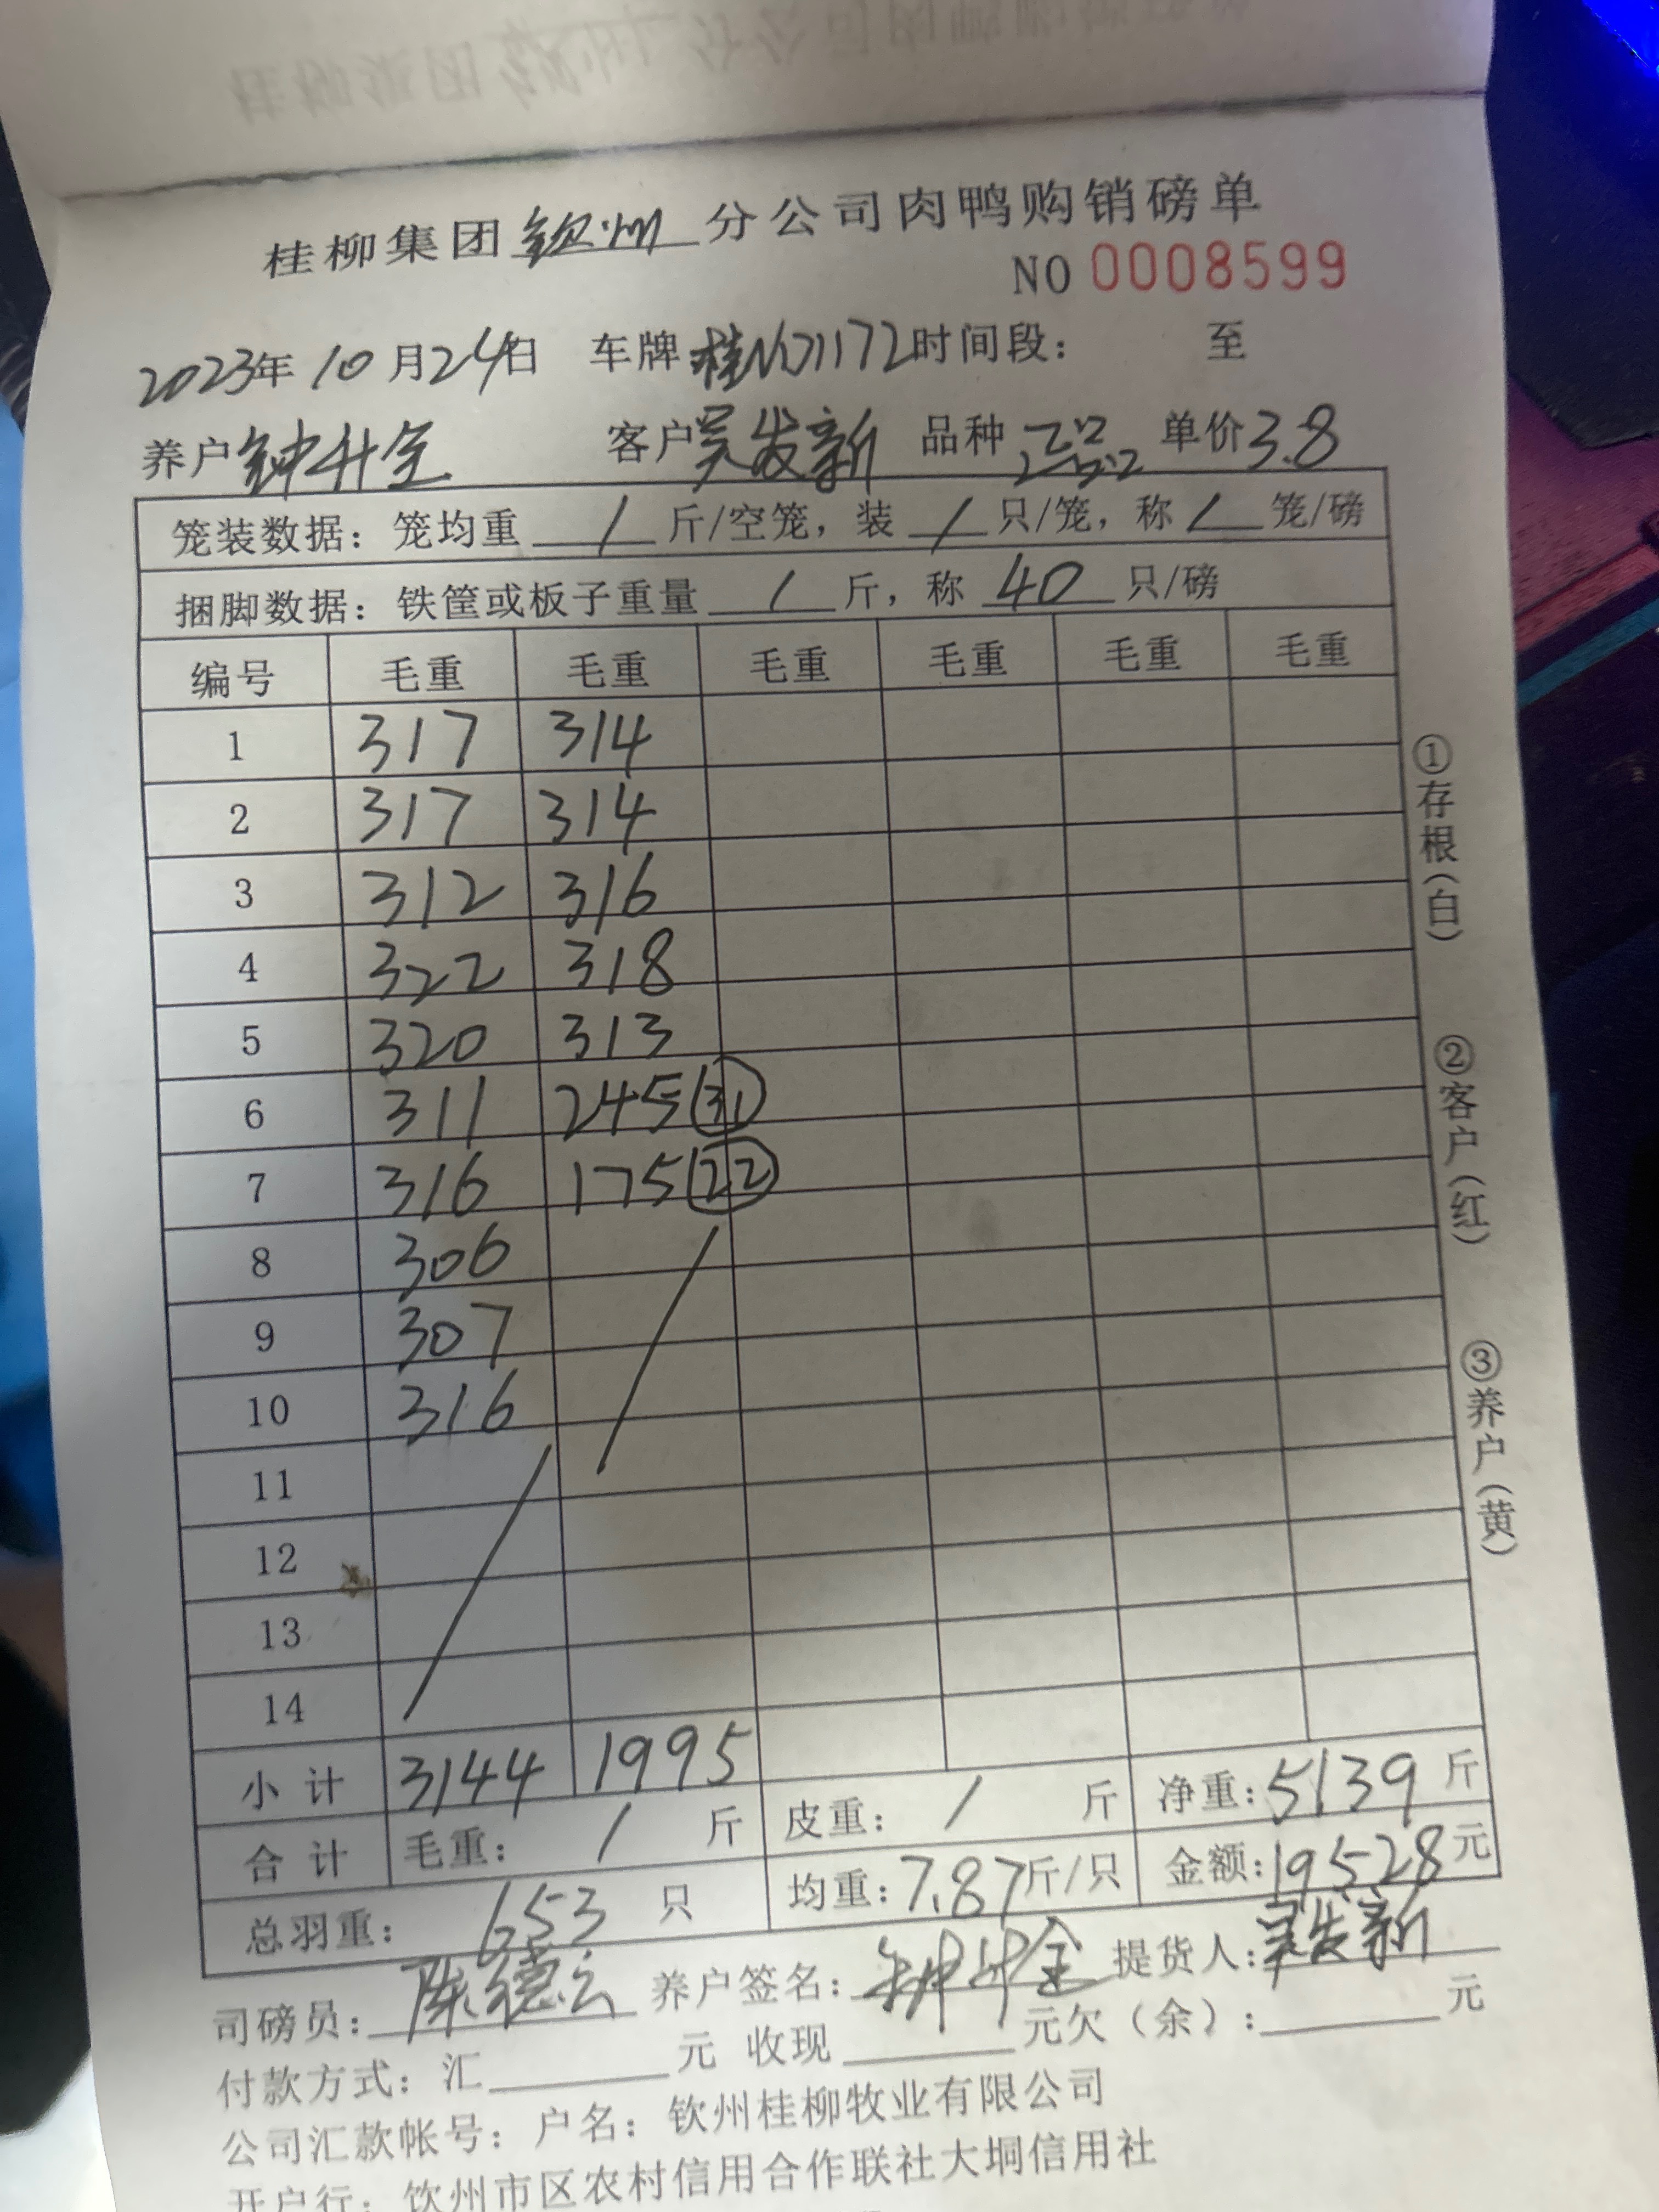 桂柳集团钦州分公司肉鸭购销磅单
NO 0008599
2023年10月24日 车牌桂N71172时间段： 至
养户钟升全 客户吴发新 品种 单价3.8
笼装数据：笼均重 / 斤/空笼，装 / 只/笼，称 / 笼/磅
捆脚数据：铁筐或板子重量 / 斤，称 40 只/磅
编号 毛重 毛重 毛重 毛重 毛重 毛重
1 317 314
2 317 314
3 312 316
4 322 318
5 320 313
6 311 245 31
7 316 175 22
8 306
9 307
10 316
11
12
13
14
小计 3144 1995
合计 毛重： / 斤 皮重： / 斤 净重：5139斤
总羽重： 653 只 均重：7.87斤/只 金额：19528元
司磅员：陈德云 养户签名：钟升全 提货人：吴发新
付款方式：汇 元 收现 元欠（余）： 元
公司汇款帐号：户名：钦州桂柳牧业有限公司
开户行：钦州市区农村信用合作联社大垌信用社
①存根（白）
②客户（红）
③养户（黄）